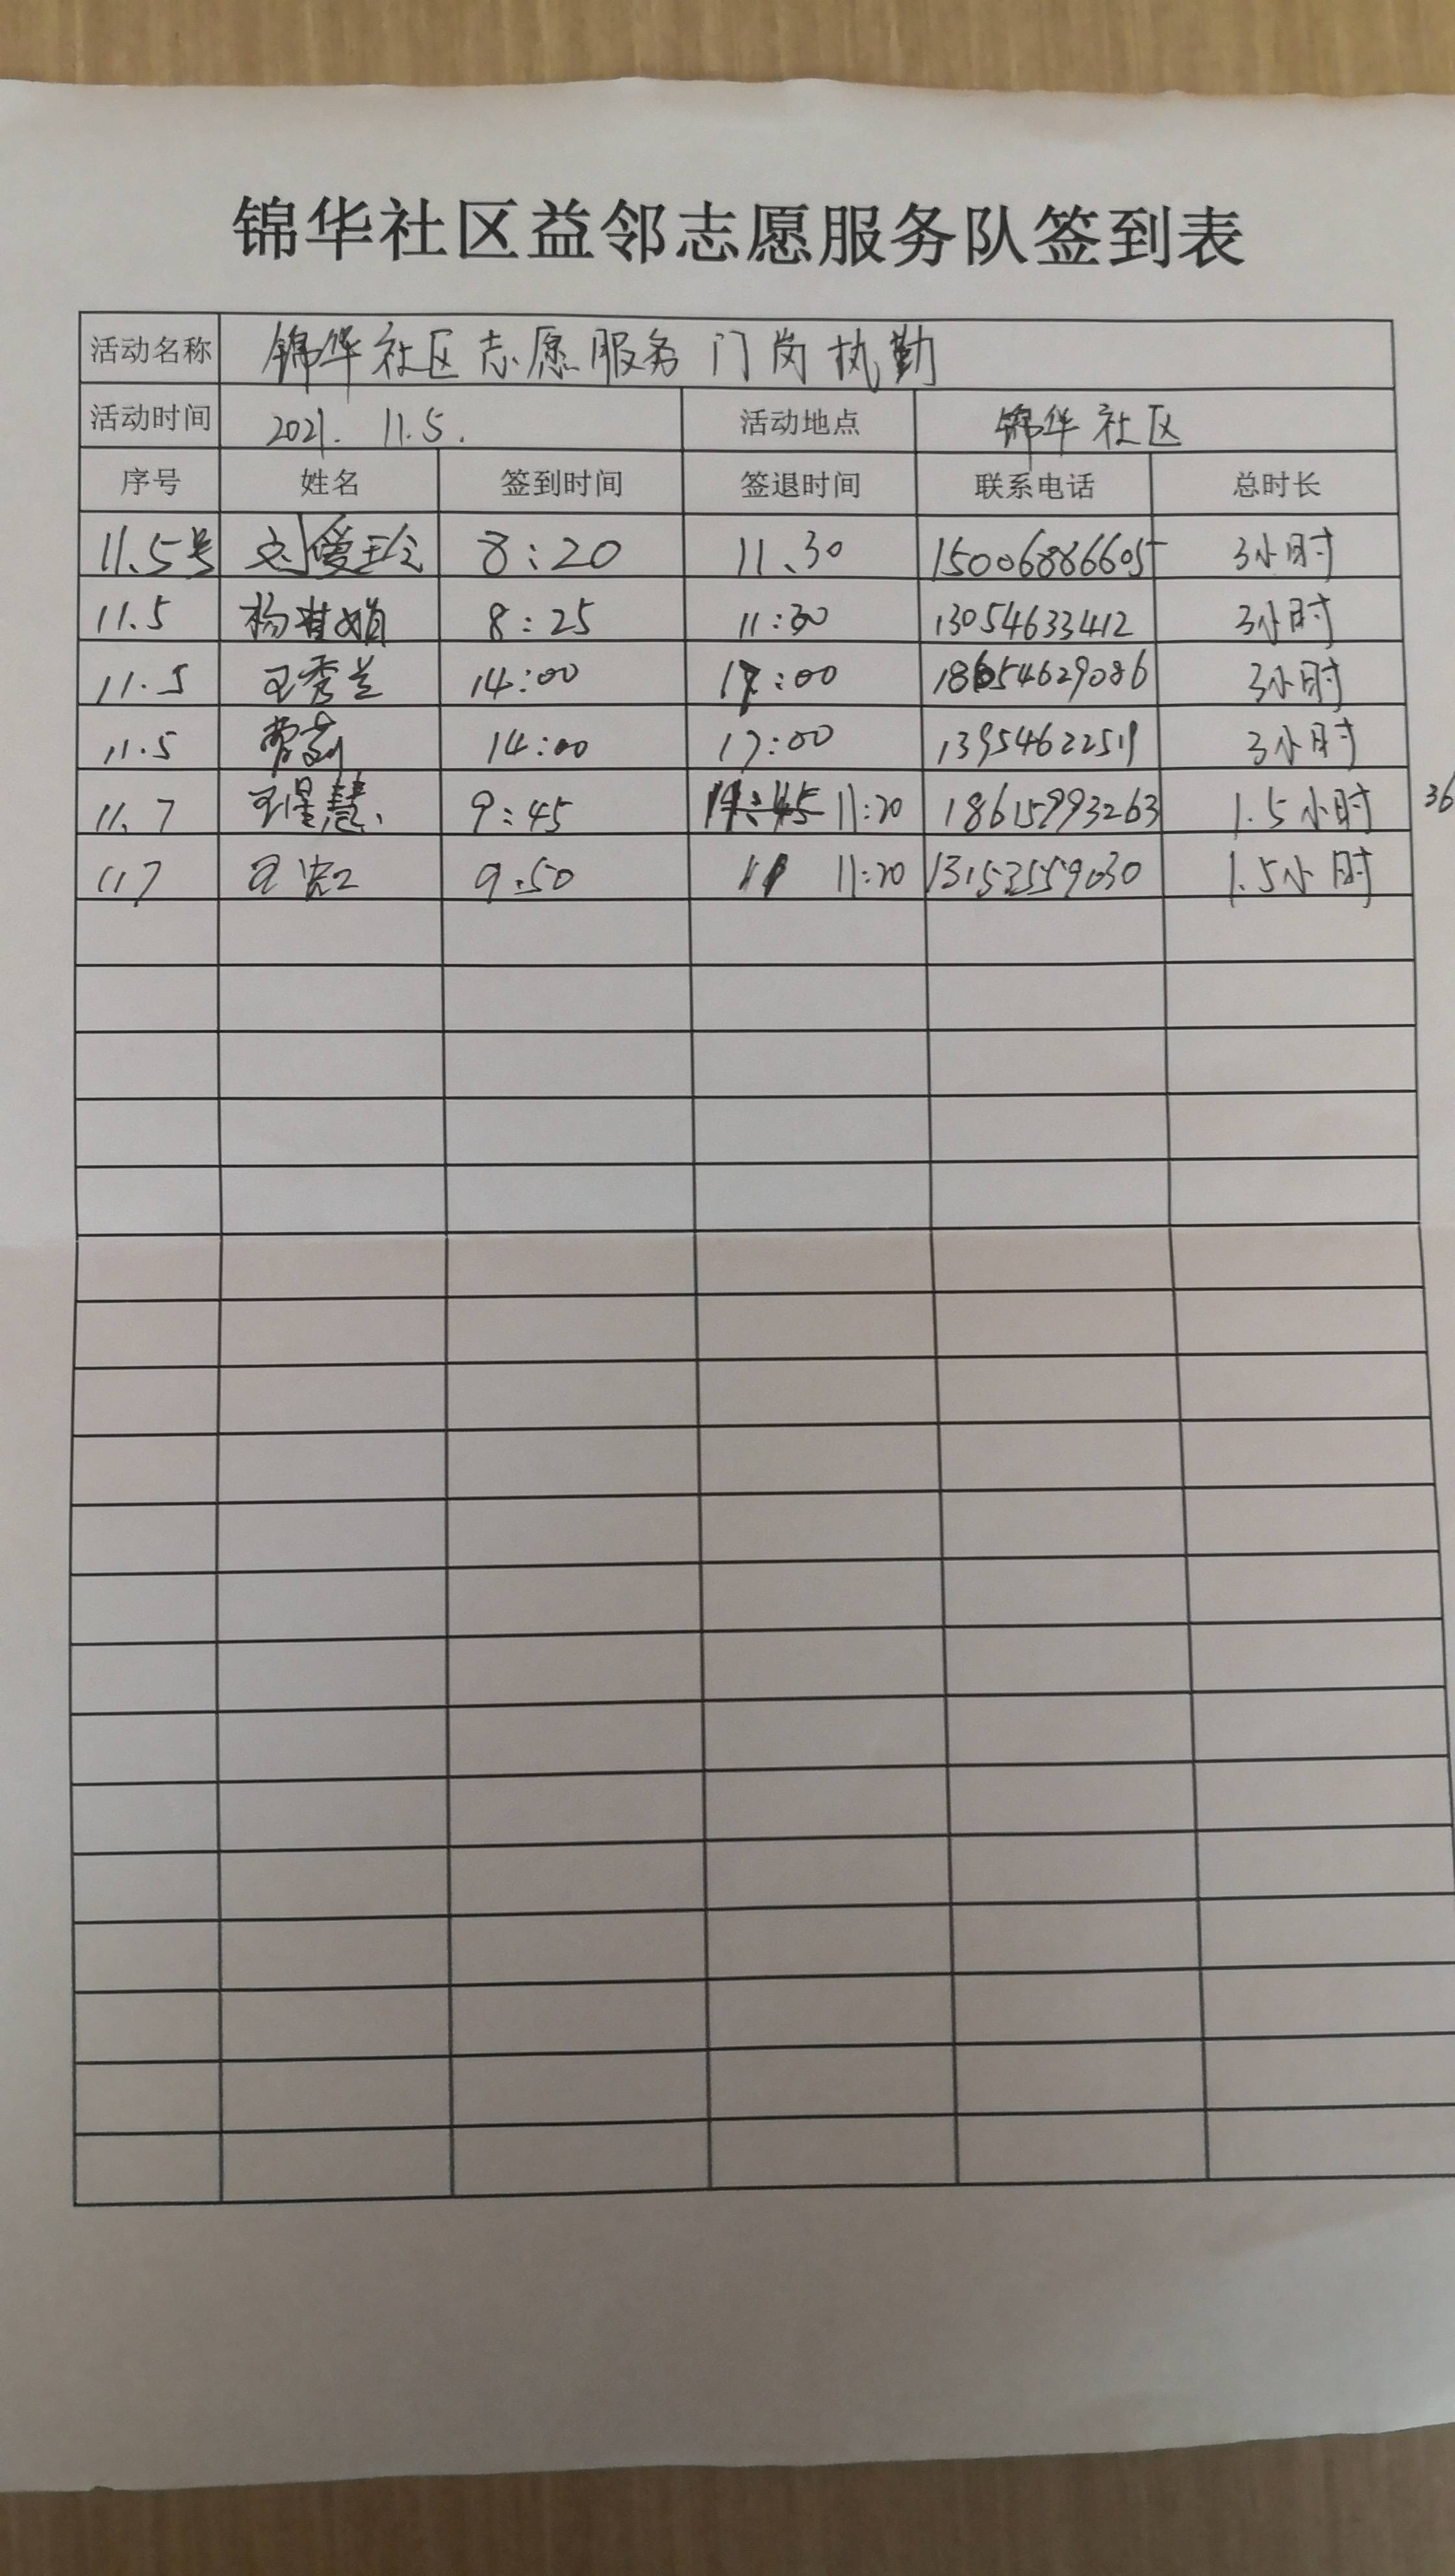 锦华社区益邻志愿服务队签到表
活动名称 锦华社区志愿服务门岗执勤
活动时间 2021. 11.5. 活动地点 锦华社区
序号 姓名 签到时间 签退时间 联系电话 总时长
11.5号 刘爱玲 8:20 11、30 15006886605 3小时
11.5 杨其娟 8:25 11:30 13054633412 3小时
11.5 王秀兰 14:00 17:00 18654629086 3小时
11.5 14:00 17:00 13954622519 3小时
11.7 王星慧 9:45 11:20 18615993263 1.5小时 36
11.7 9:50 11:20 13153559030 1.5小时